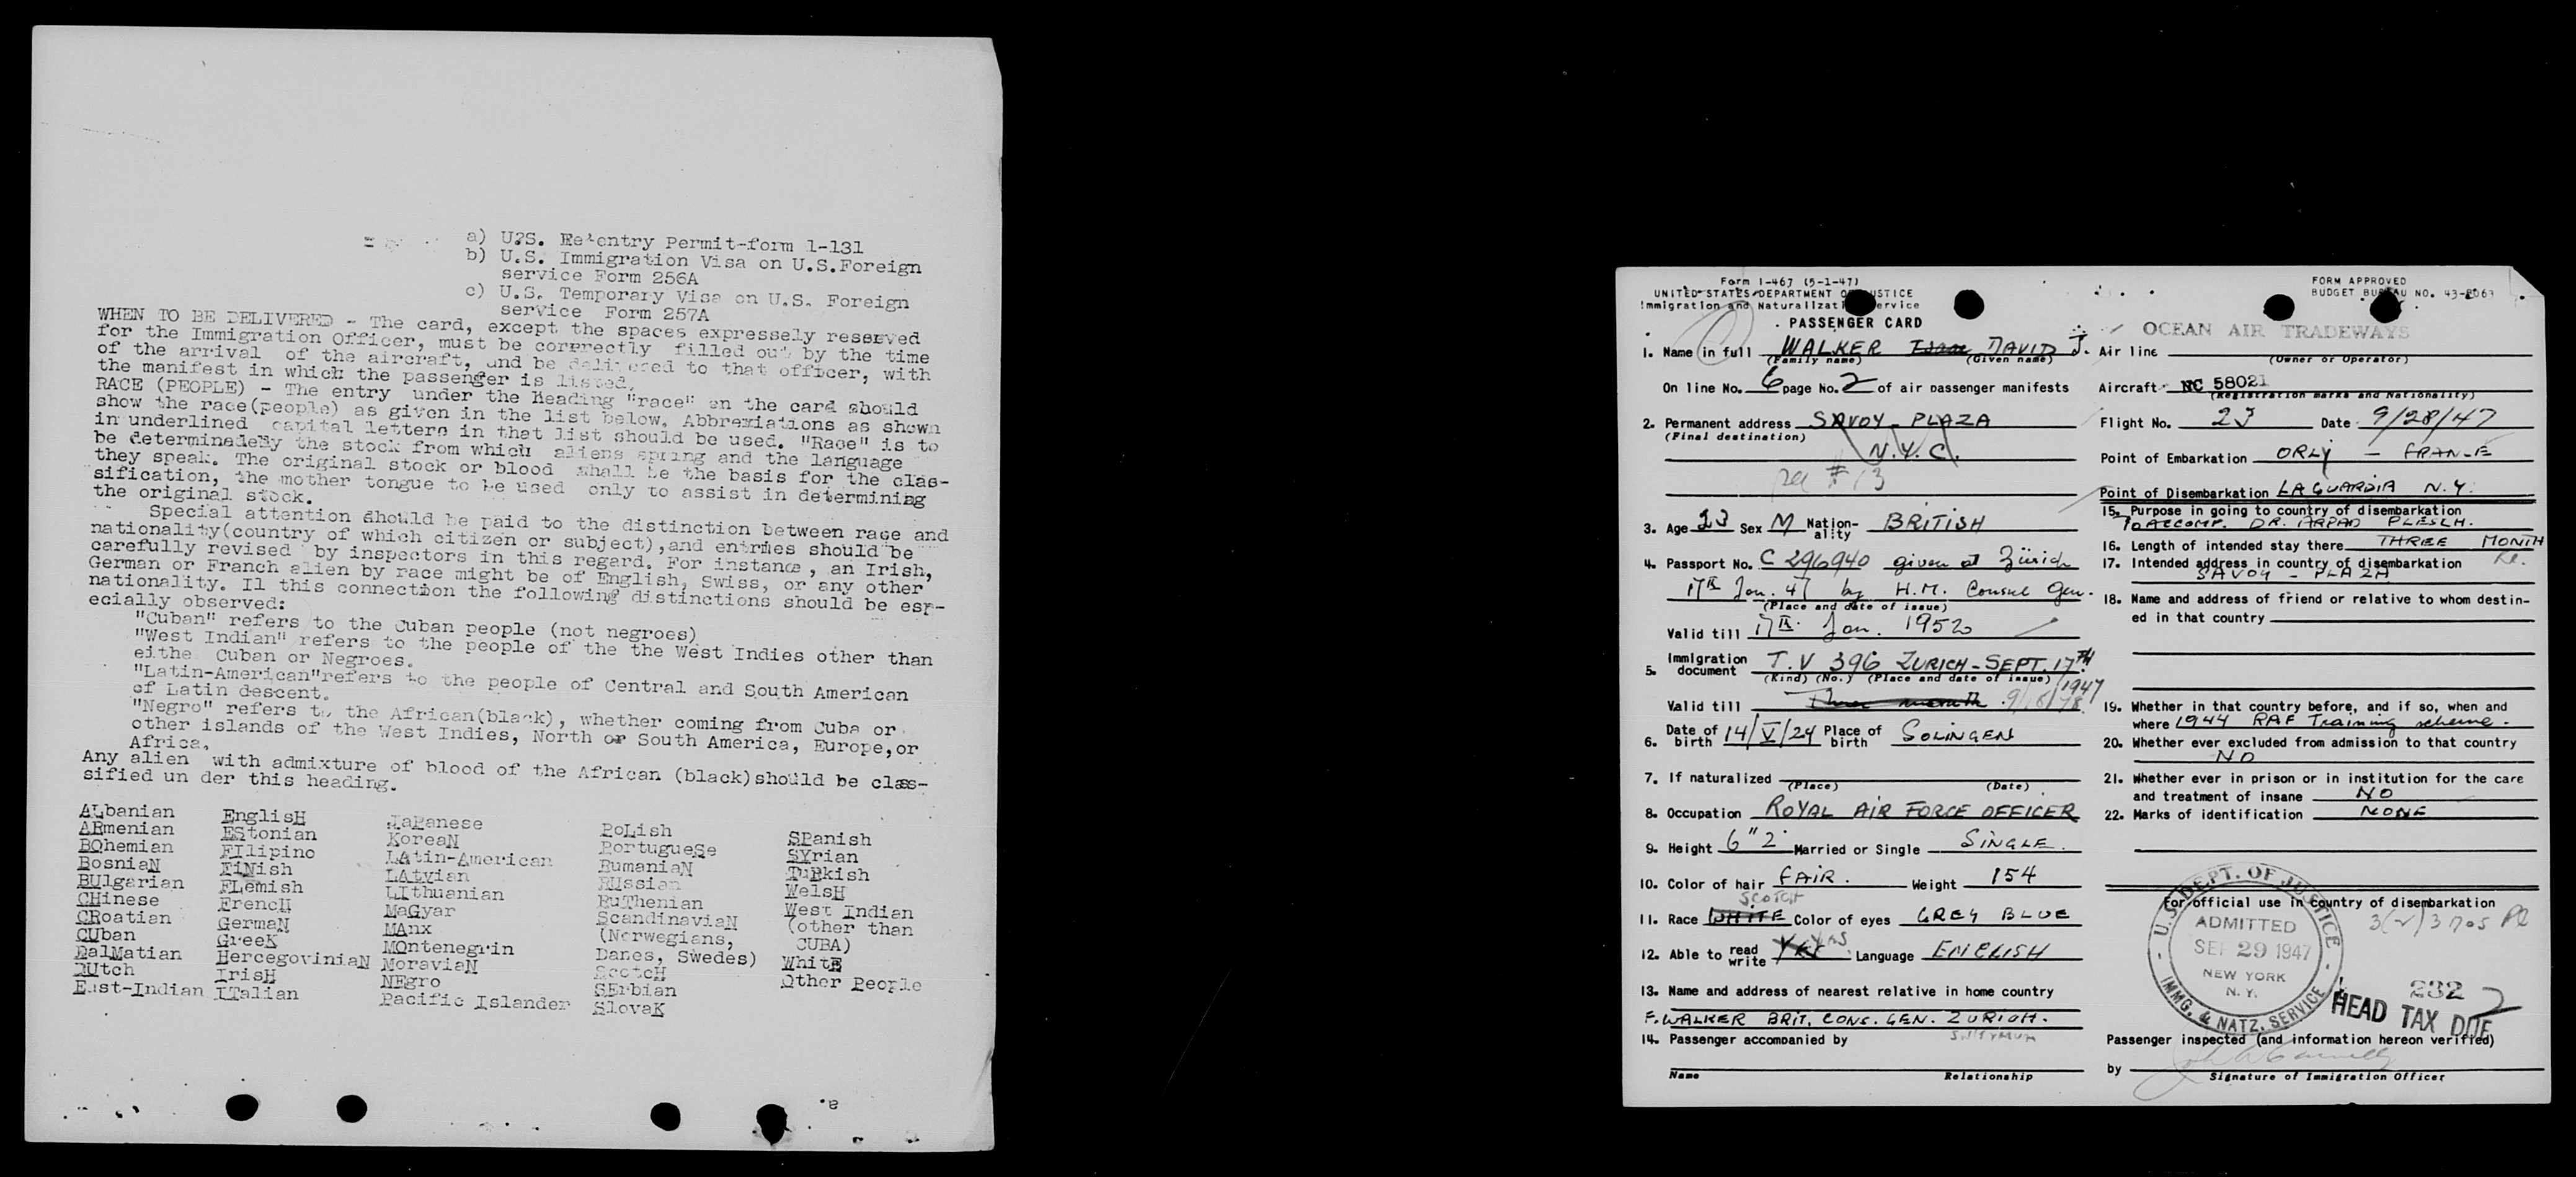 a) U.S. Re-entry Permit-form 1-131
b) U.S. Immigration Visa on U.S.Foreign
service Form 256A
c) U.S. Temporary Visa on U.S. Foreign
service Form 257A
WHEN TO BE DELIVERED - The card, except the spaces expressely reserved
for the Immigration Officer, must be corprectly filled out by the time
of the arrival of the aircraft, and be delivered to that officer, with
the manifest in which the passenger is listed.
RACE (PEOPLE) - The entry under the Heading "race" on the card should
show the race(people) as given in the list below. Abbreviations as shown
in underlined capital letters in that list should be used. "Race" is to
be determinadeBy the stock from which aliens spring and the language
they speak. The original stock or blood shall be the basis for the clas-
sification, the mother tongue to be used only to assist in determining
the original stock.
Special attention should be paid to the distinction between race and
nationality(country of which citizen or subject),and entries should be
carefully revised by inspectors in this regard. For instance, an Irish,
German or Franch alien by race might be of English, Swiss, or any other
nationality. Il this connection the following distinctions should be esp-
ecially observed:
"Cuban" refers to the Cuban people (not negroes)
"West Indian" refers to the people of the the West Indies other than
eithe Cuban or Negroes.
"Latin-American"refers to the people of Central and South American
of Latin descent.
"Negro" refers to the African(black), whether coming from Cuba or
other islands of the West Indies, North or South America, Europe,or
Africa.
Any alien with admixture of blood of the African (black)should be clas-
sified un der this heading.
ALbanian EnglisH JaPanese PoLish SPanish
ARmenian EStonian KoreaN PortugueSe SYrian
BOhemian FIlipino LAtin-American RumaniaN TuRkish
BosniaN FiNish LAtvian RUssian WelsH
BUlgarian FLemish LIthuanian RuThenian West Indian
CHinese FrencH MaGyar ScandinaviaN (other than
CRoatian GermaN MAnx (Norwegians, CUBA)
CUban GreeK MOntenegrin Danes, Swedes) WhitE
DalMatian HercegoviniaN MoraviaN ScotcH Other People
DUtch IrisH NEgro SErbian
East-Indian ITalian Pacific Islander SlovaK
a.
Form 1-467 (5-1-47)
UNITED STATES DEPARTMENT OF JUSTICE
Immigration and Naturalization Service
PASSENGER CARD
1. Name in full WALKER DAVID J.
(Family name) (Given name)
On line No. 6 page No. 2 of air passenger manifests
2. Permanent address SAVOY - PLAZA
(Final destination)
N.Y.C.
3. Age 23 Sex M Nation-ality BRITISH
4. Passport No. C 296940 given at Zürich
17th Jan. 47 by H.M. Consul Gen.
(Place and date of issue)
Valid till 17th Jan. 1952
5. Immigration document T.V 396 ZURICH - SEPT. 17TH
(Kind) (No.) (Place and date of issue) 1947
Valid till
6. Date of birth 14/V/24 Place of birth SOLINGEN
7. If naturalized
(Place) (Date)
8. Occupation ROYAL AIR FORCE OFFICER
9. Height 6"2' Married or Single SINGLE.
10. Color of hair FAIR. Weight 154
SCOTCH
11. Race WHITE Color of eyes GREY BLUE
12. Able to read write YES Language ENGLISH
13. Name and address of nearest relative in home country
F. WALKER BRIT. CONS. GEN. ZURICH.
14. Passenger accompanied by
Name Relationship
FORM APPROVED
BUDGET BUREAU NO. 43-R063
OCEAN AIR TRADEWAYS
Air line
(Owner or Operator)
Aircraft NC 58021
(Registration marks and Nationality)
Flight No. 23 Date 9/28/47
Point of Embarkation ORLY - FRANCE
Point of Disembarkation LAGUARDIA N.Y.
15. Purpose in going to country of disembarkation
TO ACCOMP. DR. ARPAD PLESCH.
16. Length of intended stay there THREE MONTH
17. Intended address in country of disembarkation
SAVOY - PLAZA
18. Name and address of friend or relative to whom destin-
ed in that country
19. Whether in that country before, and if so, when and
where 1944 RAF Training scheme.
20. Whether ever excluded from admission to that country
NO
21. Whether ever in prison or in institution for the care
and treatment of insane NO
22. Marks of identification NONE
For official use in country of disembarkation
U.S. DEPT. OF JUSTICE
ADMITTED
SEP 29 1947
NEW YORK
N.Y.
IMMG. & NATZ. SERVICE
232
HEAD TAX DUE
Passenger inspected (and information hereon verified)
by
Signature of Immigration Officer